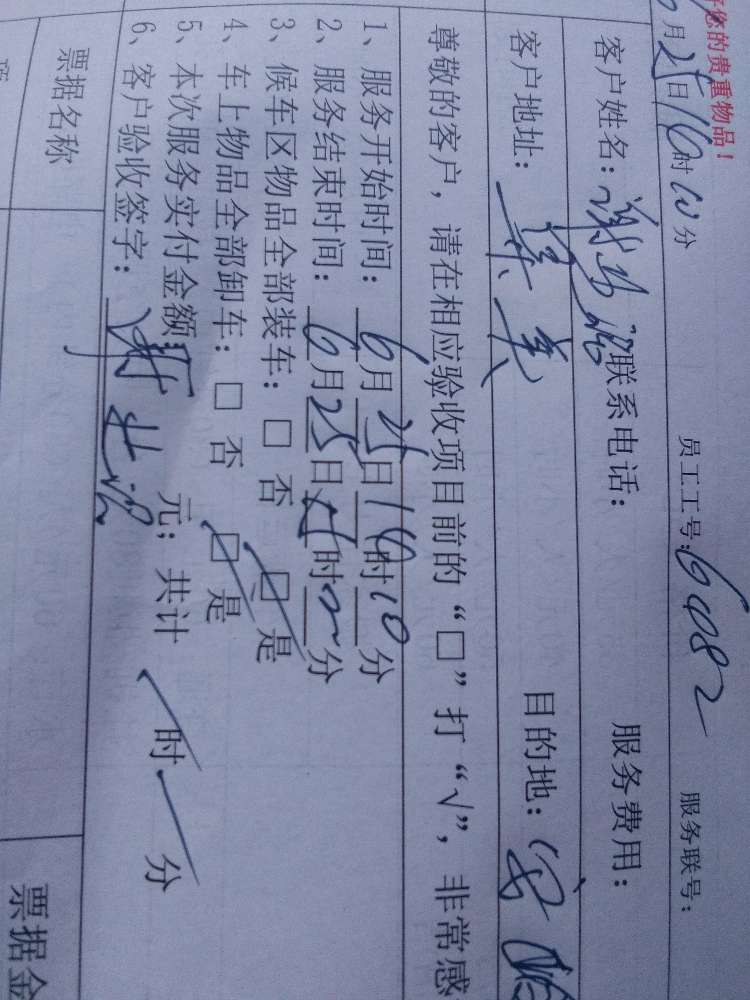 您的贵重物品！
月25日16时10分 员工工号：6082 服务联号：
客户姓名：谢 联系电话： 服务费用：
客户地址： 目的地：
尊敬的客户，请在相应验收项目前的“□”打“√”，非常感
1、服务开始时间：6月25日16时10分
2、服务结束时间：6月25日 时 分
3、候车区物品全部装车：□ 否 □ 是
4、车上物品全部卸车：□ 否 □ 是
5、本次服务实付金额： 元；共计 时 分
6、客户验收签字：谢
票据名称 票据金